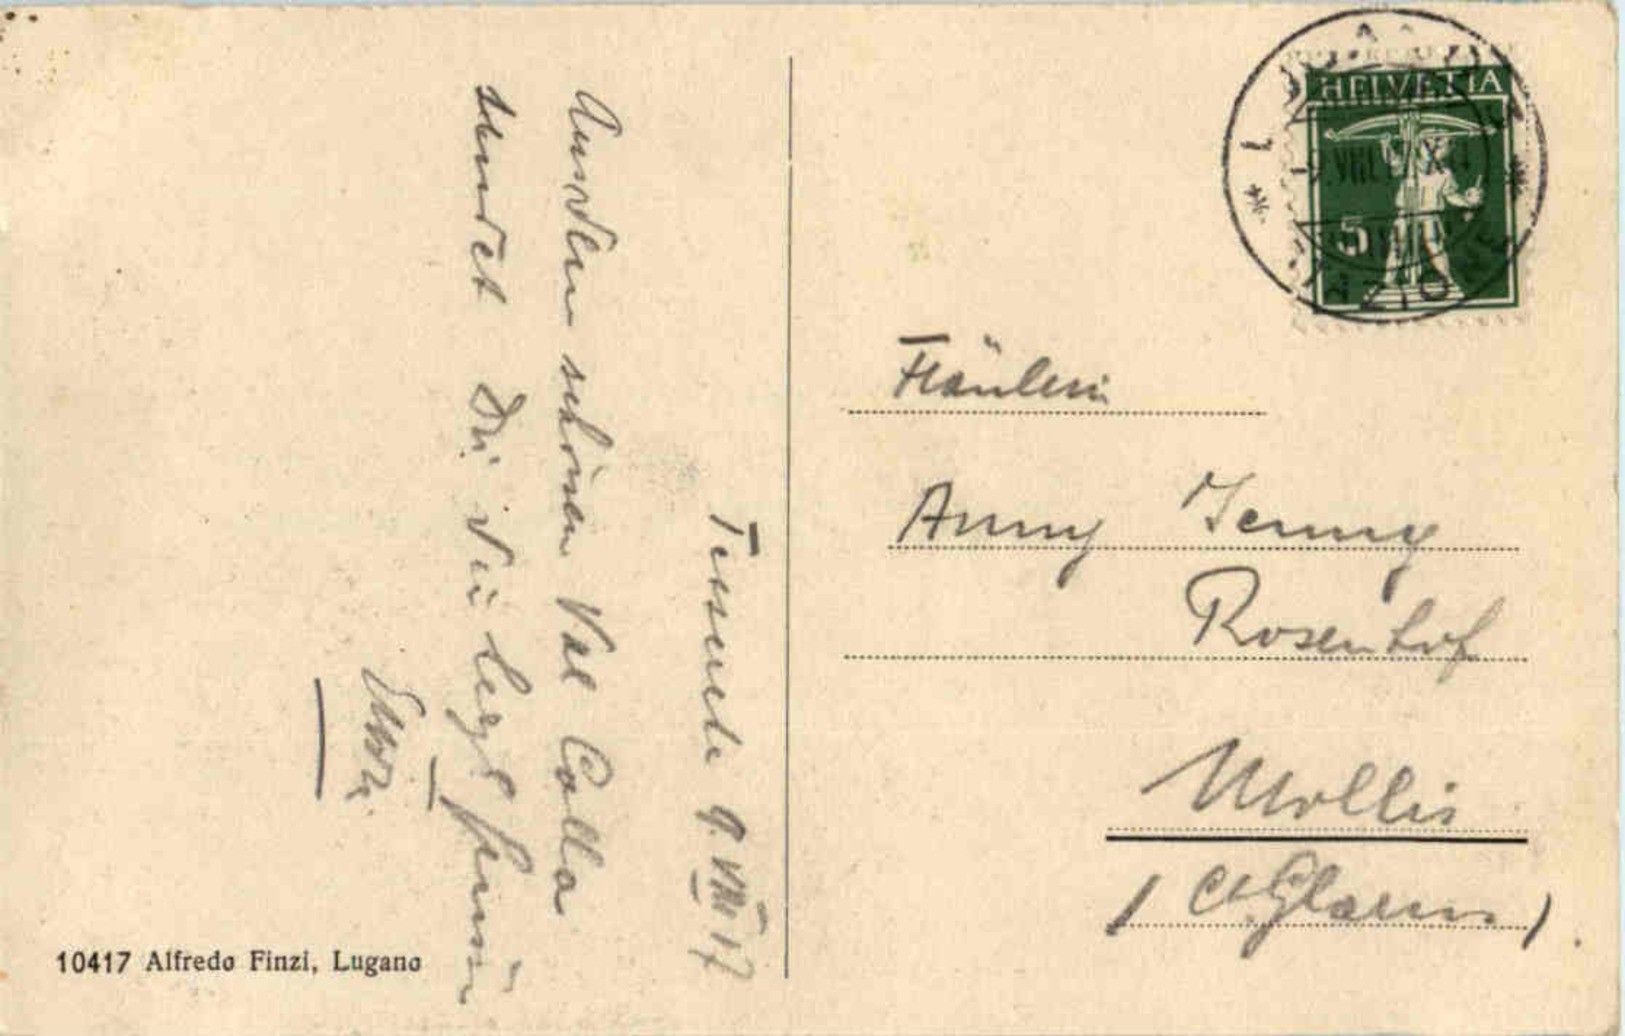 Tesserete 9. VIII 17
Aus dem schönen Val Colla
sendet Dir die
HELVETIA
5
Fräulein
Anny Jenny
Rosenhof
Mollis
(Ct. Glarus)
10417 Alfredo Finzi, Lugano